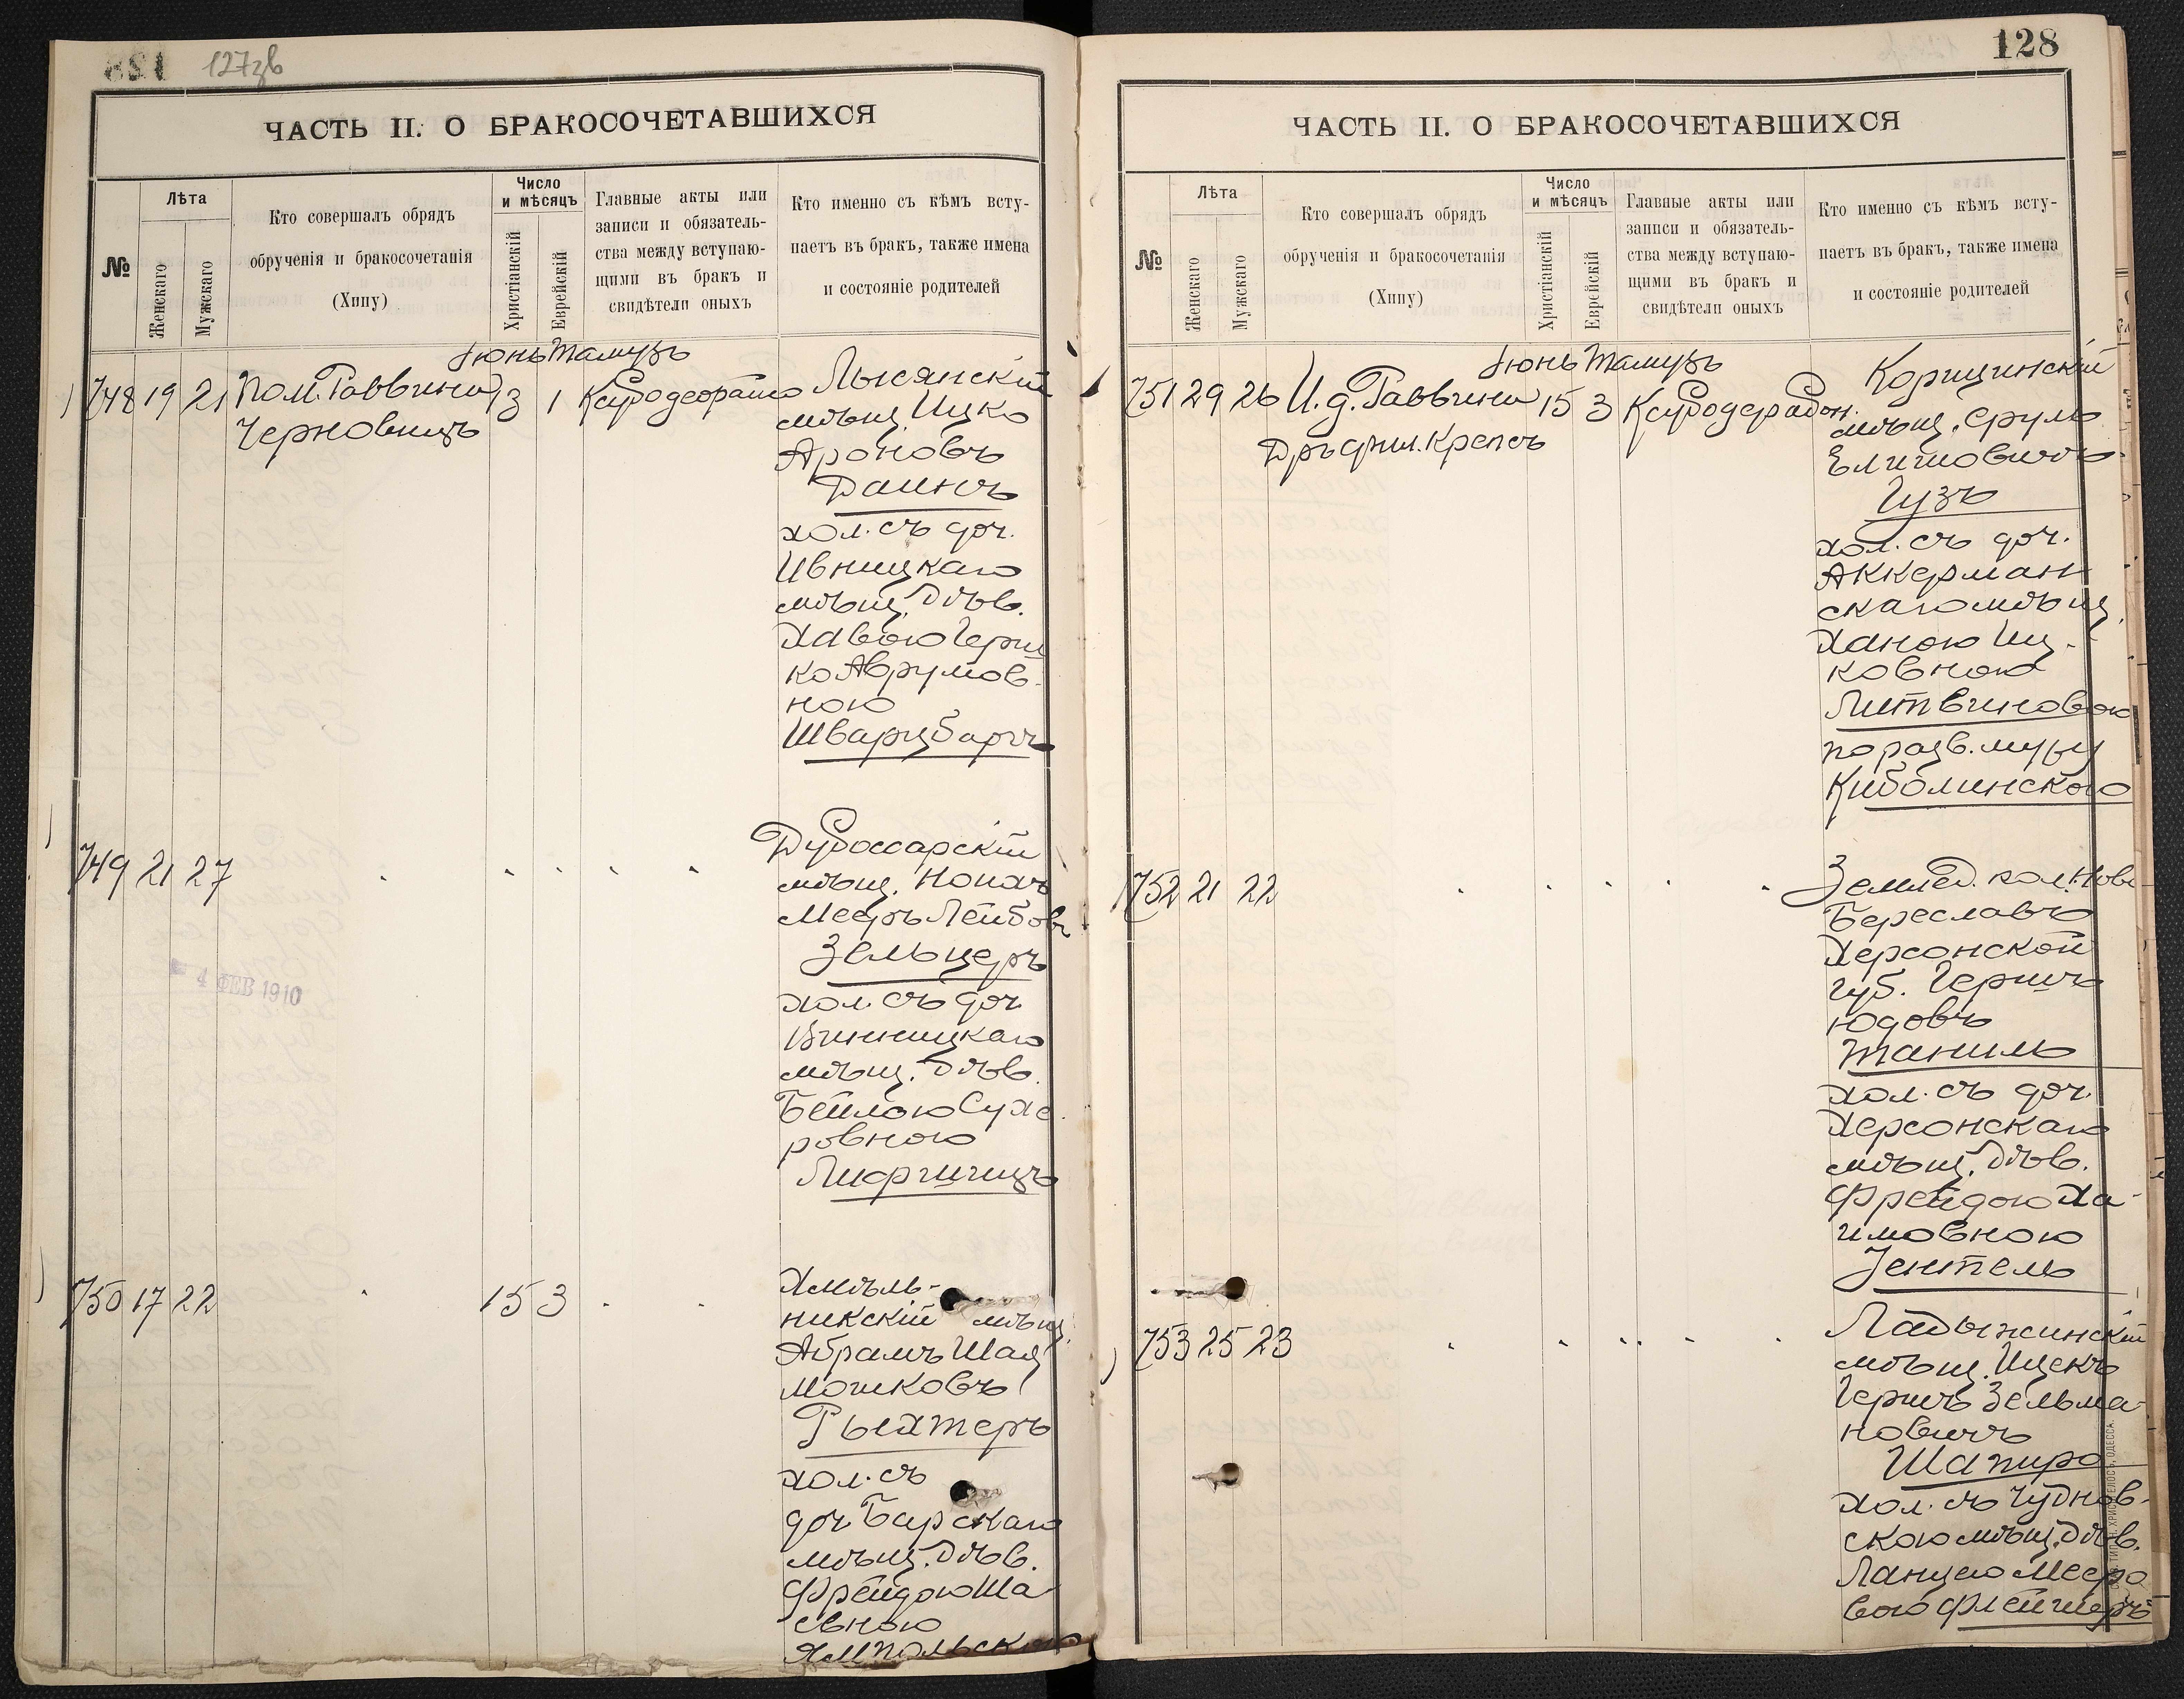 127зв
ЧАСТЬ II. О БРАКОСОЧЕТАВШИХСЯ
№
Лѣта
Женскаго
Мужскаго
Кто совершалъ обрядъ
обрученія и бракосочетанія
(Хипу)
Число
и мѣсяцъ
Христіанскій
Еврейскій
Главные акты или
записи и обязатель-
ства между вступаю-
щими въ бракъ и
свидѣтели оныхъ
Кто именно съ кѣмъ всту-
паетъ въ бракъ, также имена
и состояніе родителей
Іюнь Тамузъ
748 19 21 Пом. Раввина 13 1 Лысянскій
Черновицъ
мѣщ. Ицко
Ароновъ
Даинъ
хол. съ доч.
Ивницкаго
мѣщ. дѣв.
Хавою Герш
ко Аврумов-
ною
Шварцбартъ
749 21 27
Дубоссарскій
мѣщ.
Мееръ Лейбовъ
Зельцеръ
хол. съ доч.
Винницкаго
мѣщ. дѣв.
Бейлою Сухе-
ровною
4 ФЕВ 1910
750 17 22 15 3
Хмѣль-
никскій мѣщ.
Абрамъ Шая
Мошковъ
Рыхтеръ
хол. съ
доч. Барскаго
мѣщ. дѣв.
Фрейдою Ша-
евною
Ямпольскою
128
ЧАСТЬ II. О БРАКОСОЧЕТАВШИХСЯ
№
Лѣта
Женскаго
Мужскаго
Кто совершалъ обрядъ
обрученія и бракосочетанія
(Хипу)
Число
и мѣсяцъ
Христіанскій
Еврейскій
Главные акты или
записи и обязатель-
ства между вступаю-
щими въ бракъ и
свидѣтели оныхъ
Кто именно съ кѣмъ всту-
паетъ въ бракъ, также имена
и состояніе родителей
Іюнь Тамузъ
751 29 26 И. д. Раввина 15 3 Корицинскій
Дръ фил. Крепсъ
мѣщ. Сруль
Елишовичъ
Гузъ
хол. съ доч.
Аккерман
скаго мѣщ.
Ханою Иц-
ковною
Литвиновою
по разв. мужу
Киблинскою
752 21 22
Землед. кол. Ново
Береславъ
Херсонской
губ. Гершъ
Юдовъ
Таниль
хол. съ доч.
Херсонскаго
мѣщ. дѣв.
Фрейдою Ха-
имовною
Зентель
753 25 23
Ладыжинскій
мѣщ. Ицекъ
Гершъ Зельма-
новичъ
Шапиро
хол. съ Чуднов-
скою мѣщ. дѣв.
Ланцею Мееро
вою Флейшеръ